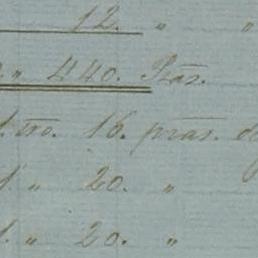 12. " "
" 440. Pzas.
1. vro. 16. pzas. d
1 " 20. "
1. " 20. "